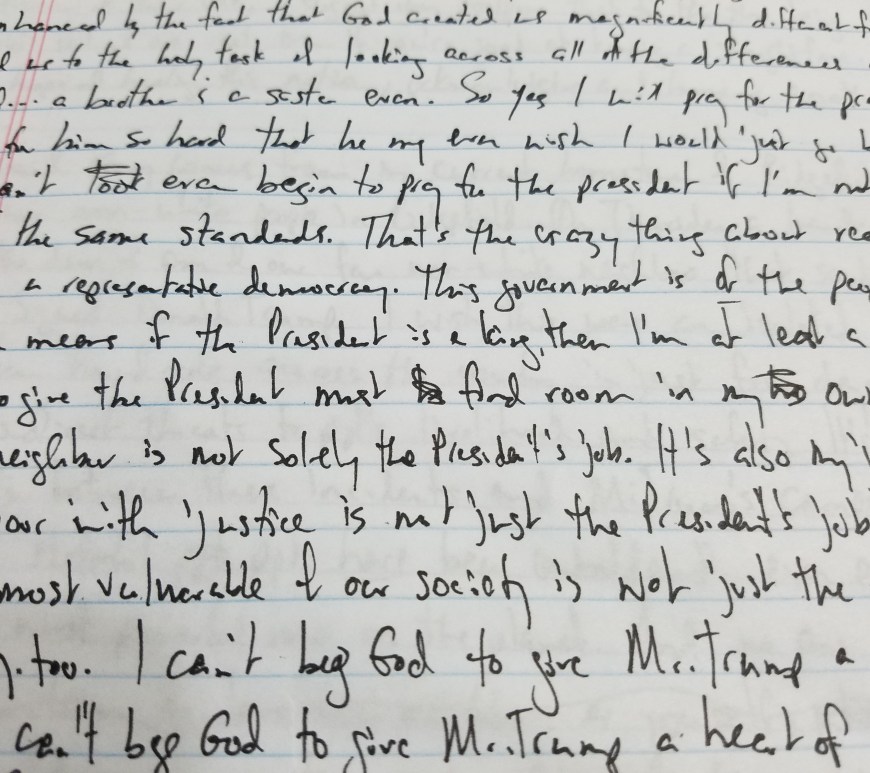 nhanced by the fact that God created us magnificently different f
l us to the holy task of looking across all of the differences
... a brother is a sister even. So yes I will pray for the pre
for him so hard that he my even wish I would just go
an't took even begin to pray for the president if I'm not
the same standards. That's the crazy thing about rea
a representative democracy. This government is of the peo
means if the President is a king, then I'm at least a
o give the President must find room in my own
neighbor is not solely the President's job. It's also my
our with justice is not just the President's job
most vulnerable of our society is not just the
). too. I can't beg God to give Mr. Trump a
can't beg God to give Mr. Trump a heart of